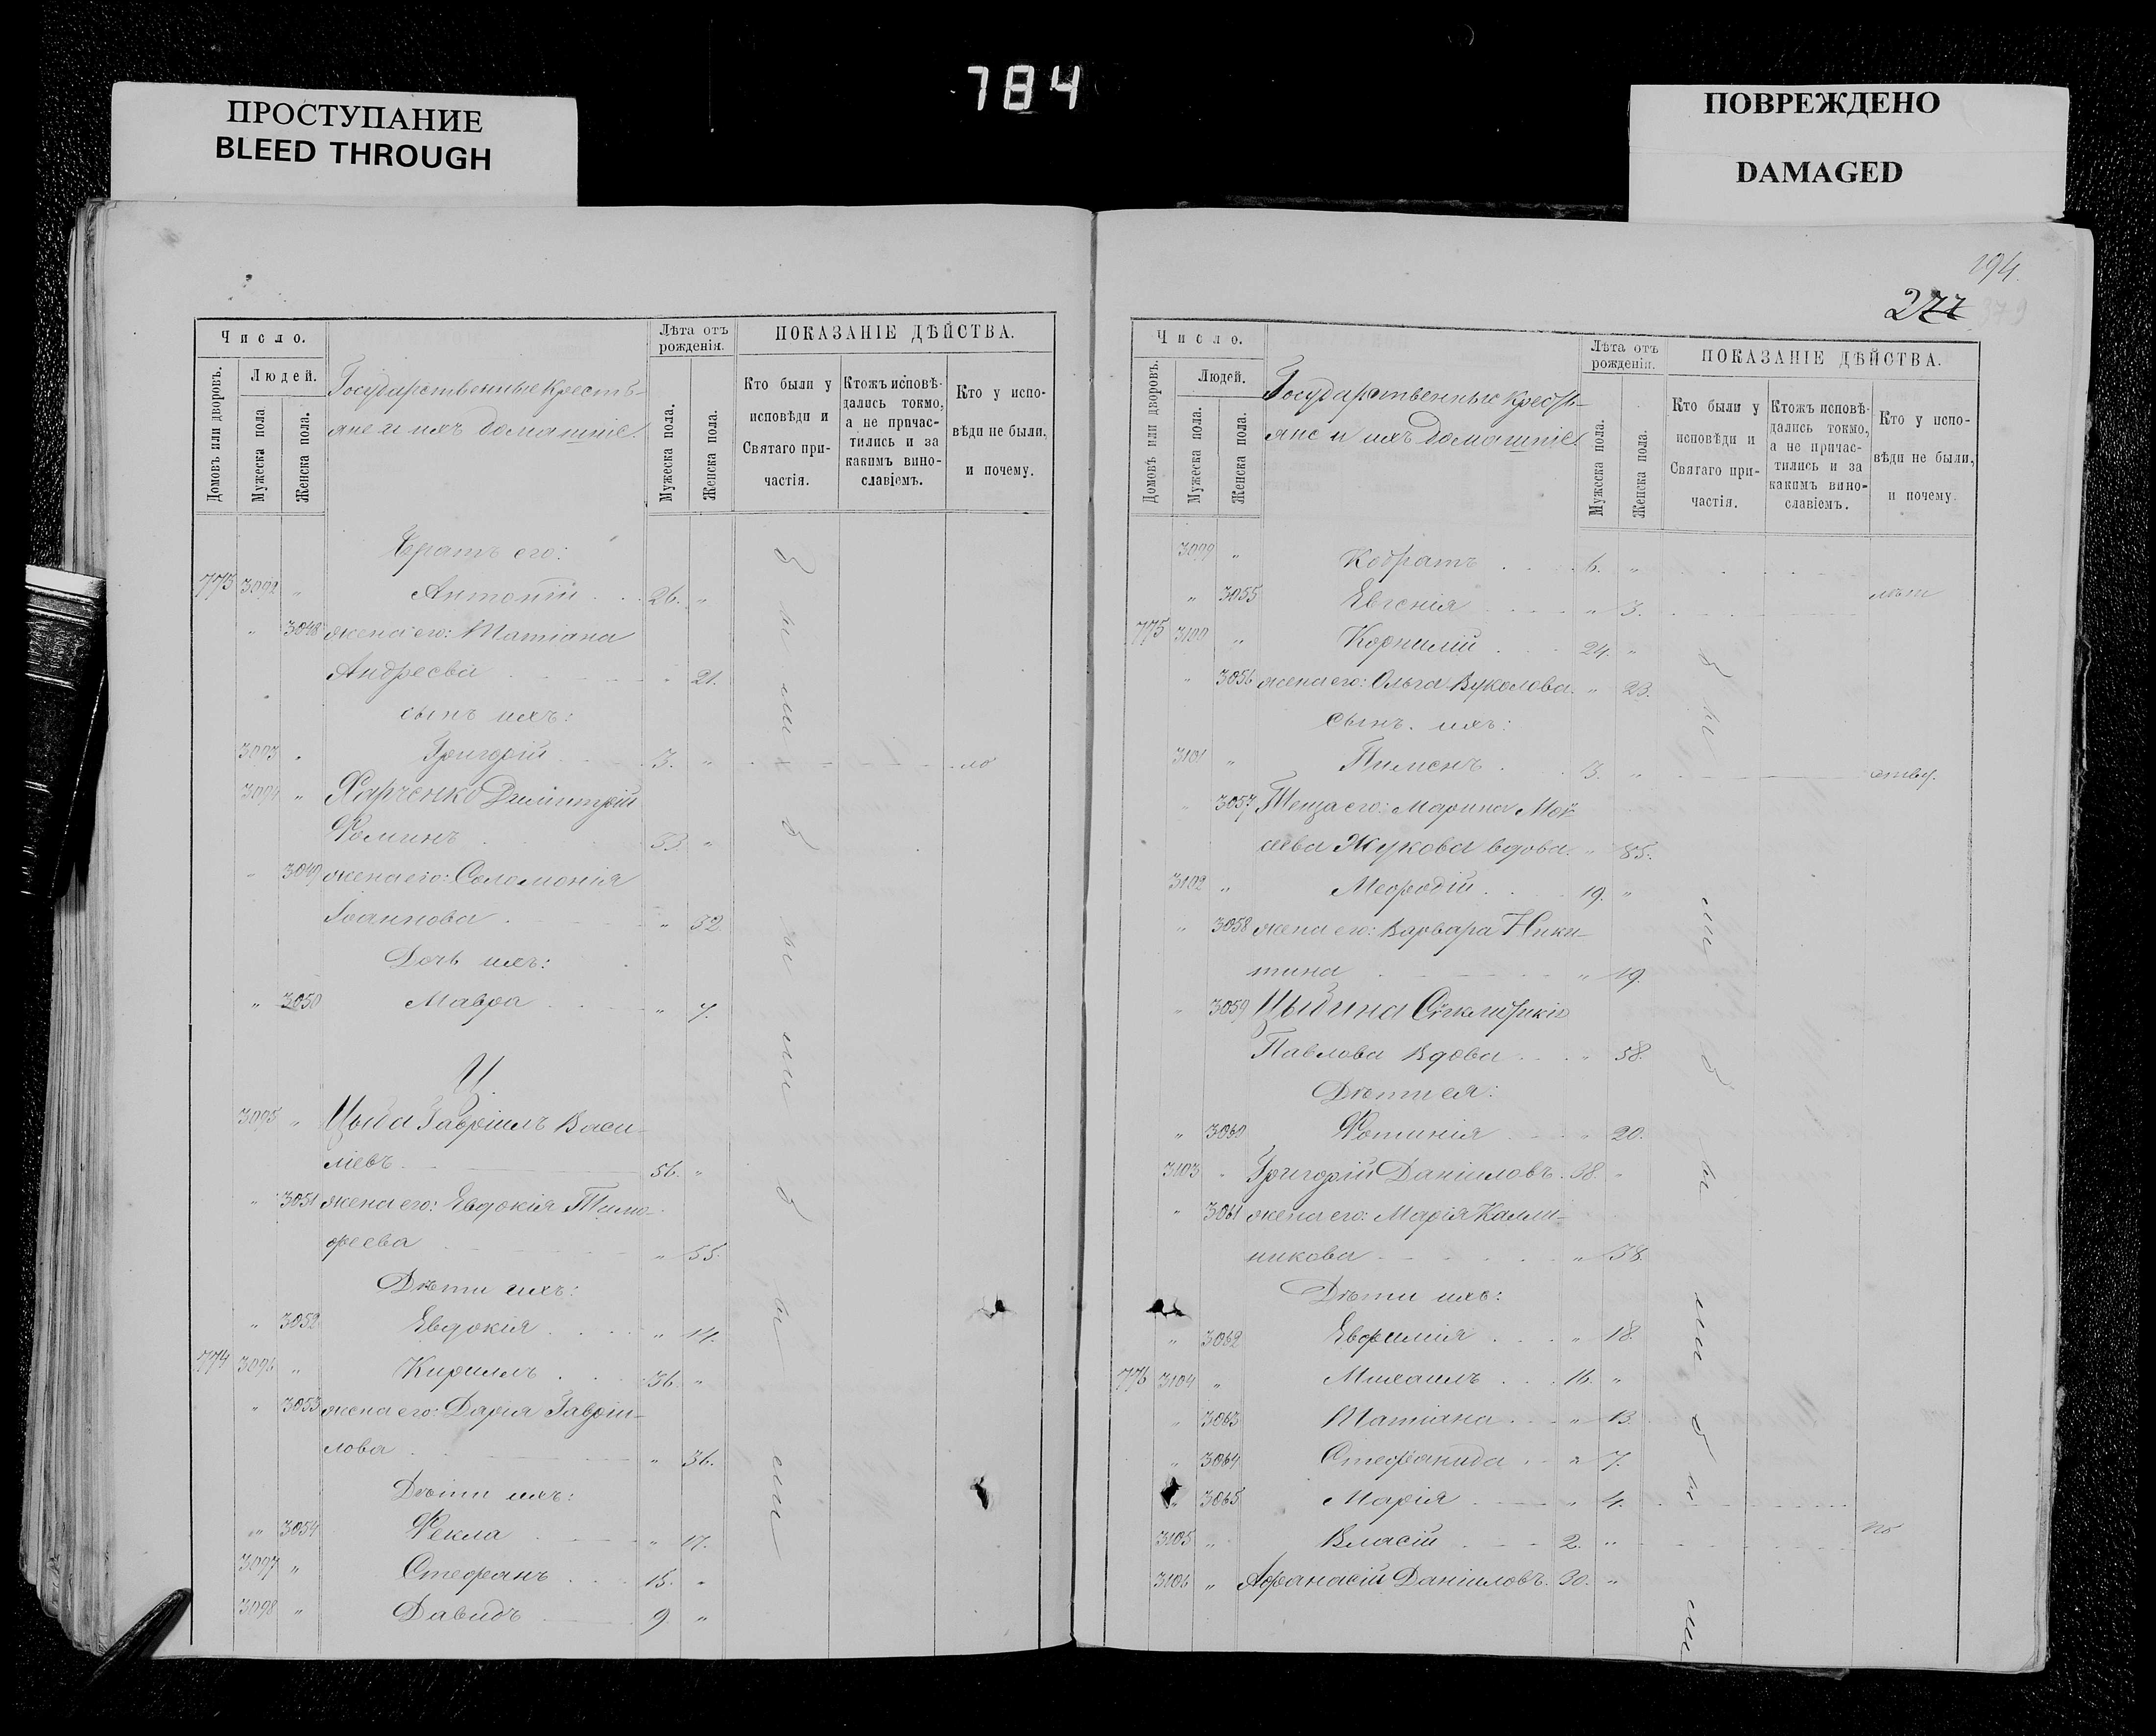 784
ПРОСТУПАНИЕ
BLEED THROUGH
ПОВРЕЖДЕНО
DAMAGED
Число.
Людей.
Домовъ или дворовъ.
Мужеска пола
Женска пола.
Государственные кресть-
яне и ихъ домашніе.
Лѣта отъ рожденія.
Мужеска пола.
Женска пола.
ПОКАЗАНІЕ ДѢЙСТВА.
Кто были у исповѣди и Святаго при-частія.
Ктожъ исповѣ-дались токмо, а не причас-тились и за какимъ вино-славіемъ.
Кто у испо-вѣди не были, и почему.
Братъ его:
773 3092 " Антоній 26. "
" 3048 жена его: Татіана
Андреева " 21.
сынъ ихъ:
3093 " Григорій 3. " ло
3094 " Харченко Димитрій
Ѳоминъ 33 "
" 3049 жена его: Соломонія
Іоаннова " 32
Дочь ихъ:
" 3050 Мавра " 7.
Ц.
3095 " Цыба Гавріилъ Васи-
ліевъ 56. "
" 3051 жена его: Евдокія Тимо-
феева " 55.
Дѣти ихъ:
" 3052 Евдокія " 14.
774 3096 " Кириллъ 36. "
" 3053 жена его: Дарія Гавріи-
лова " 36.
Дѣти ихъ:
" 3054 Ѳекла " 17.
3097 " Стефанъ 15. "
3098 " Давидъ 9 "
были
были
были
194.
277
Число.
Людей.
Домовъ или дворовъ.
Мужеска пола.
Женска пола.
Государственные кресть-
яне и ихъ домашніе.
Лѣта отъ рожденія.
Мужеска пола.
Женска пола.
ПОКАЗАНІЕ ДѢЙСТВА.
Кто были у исповѣди и Святаго при-частія.
Ктожъ исповѣ-дались токмо, а не причас-тились и за какимъ вино-славіемъ.
Кто у испо-вѣди не были, и почему.
3099 " Кодратъ 6. "
" 3055 Евгенія " 3. лѣт
775 3100 " Корнилій 24. "
" 3056 жена его: Ольга Вуколова. " 23.
сынъ ихъ:
3101 " Пименъ 3. " ству.
" 3057 Теща его: Марина Мои-
сеева Жукова вдова. " 85.
3102 " Меѳодій 19. "
" 3058 жена его: Варвара Ники-
тина " 19.
" 3059 Цыбина
Павлова вдова " 58.
Дѣти ея:
" 3060 Фотинія " 20.
3103 " Григорій Даніиловъ. 38. "
" 3061 жена его: Марія Калли-
никова " 38.
Дѣти ихъ:
" 3062 Евфимія " 18.
776 3104 " Михаилъ 16. "
" 3063 Татіана " 13.
" 3064 Стефанида " 7.
" 3065 Марія " 4.
3105 " Власій 2. " по
3106 " Афанасій Даніиловъ. 30. "
были
были
были